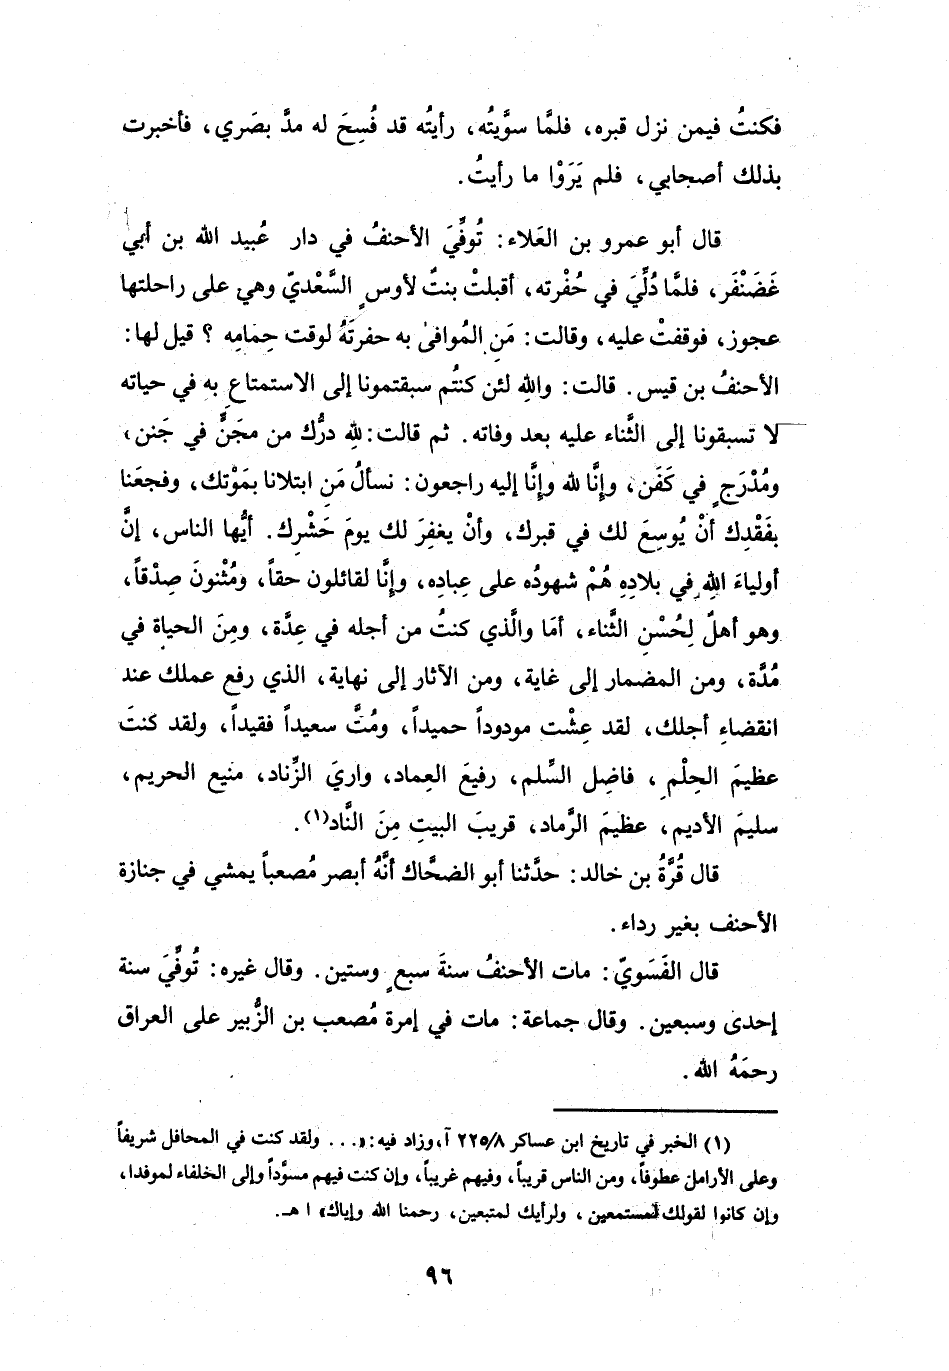 فكنتُ فيمن نزل قبره، فلمَّا سوَّيتُه، رأيتُه قد فُسِحَ له مدَّ بصَري، فأخبرت
بذلك أصحابي، فلم يَرَوْا ما رأيتُ.
قال أبو عمرو بن العَلاء: تُوفِّيَ الأحنفُ في دار عُبيد الله بن أبي
غَضَنْفَر، فلمَّا دُلِّيَ في حُفْرته، أقبلتْ بنتٌ لأوس السَّعْديّ وهي على راحلتها
عجوز، فوقفتْ عليه، وقالت: مَنِ المُوافىٰ به حفرتَهُ لوقت حِمامِه ؟ قيل لها:
الأحنفُ بن قيس. قالت: واللهِ لئن كنتُم سبقتمونا إلى الاستمتاعِ به في حياته
لا تسبقونا إلى الثَّناء عليه بعد وفاته. ثم قالت: للهِ درُّك من مجَنٍّ في جَنن،
ومُدْرَجٍ في كَفَن، وإنَّا لله وإنَّا إليه راجعون: نسألُ مَنِ ابتلانا بمَوْتك، وفجعَنا
بفَقْدِك أنْ يُوسِعَ لك في قبرك، وأنْ يغفِرَ لك يومَ حَشْرِك. أيُّها الناس، إنَّ
أولياءَ اللهِ في بلادِهِ هُمْ شهودُه على عِبادِه، وإنَّا لقائلون حقاً، ومُثْنونَ صِدْقاً،
وهو أهلٌ لِحُسْنِ الثَّناء، أمَا والَّذي كنتُ من أجله في عِدَّة، ومِنَ الحياة في
مُدَّة، ومن المضمار إلى غاية، ومن الآثار إلى نهاية، الذي رفع عملك عند
انقضاءِ أجلك، لقد عِشْت مودوداً حميداً، ومُتَّ سعيداً فقيداً، ولقد كنتَ
عظيمَ الحِلْمِ، فاضِل السِّلم، رفيعَ العِماد، واريَ الزِّناد، منيع الحريم،
سليمَ الأديم، عظيمَ الرَّماد، قريبَ البيتِ مِنَ النَّاد(١).
قال قُرَّةُ بن خالد: حدَّثنا أبو الضحَّاك أنَّهُ أبصر مُصعباً يمشي في جنازة
الأحنف بغير رداء.
قال الفَسَويّ: مات الأحنفُ سنةَ سبعٍ وستين. وقال غيره: تُوفِّيَ سنة
إحدى وسبعين. وقال جماعة: مات في إمرة مُصعب بن الزُّبير على العراق
رحمَهُ الله.
(١) الخبر في تاريخ ابن عساكر ٢٢٥/٨ آ، وزاد فيه: «... ولقد كنت في المحافل شريفاً
وعلى الأرامل عطوفاً، ومن الناس قريباً، وفيهم غريباً، وإن كنت فيهم مسوَّداً وإلى الخلفاء لموفدا،
وإن كانوا لقولك لمستمعين، ولرأيك لمتبعين، رحمنا الله وإياك» ا هـ.
٩٦